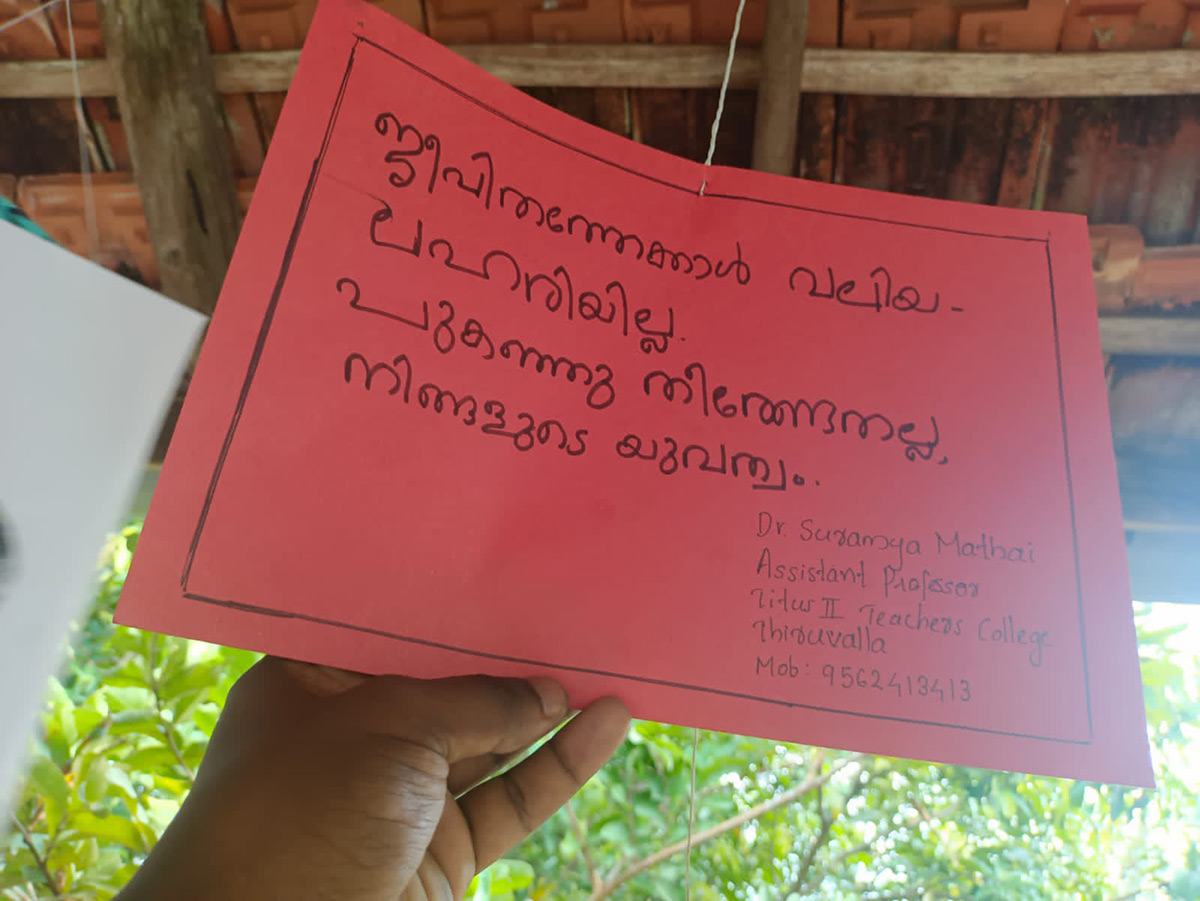 ജീവിതത്തേക്കാൾ വലിയ-
ലഹരിയില്ല.
പുകഞ്ഞു തീരേണ്ടതല്ല,
നിങ്ങളുടെ യുവത്വം.
Dr. Suramya Mathai
Assistant Professor
Titus II Teachers College
Thiruvalla
Mob: 9562413413